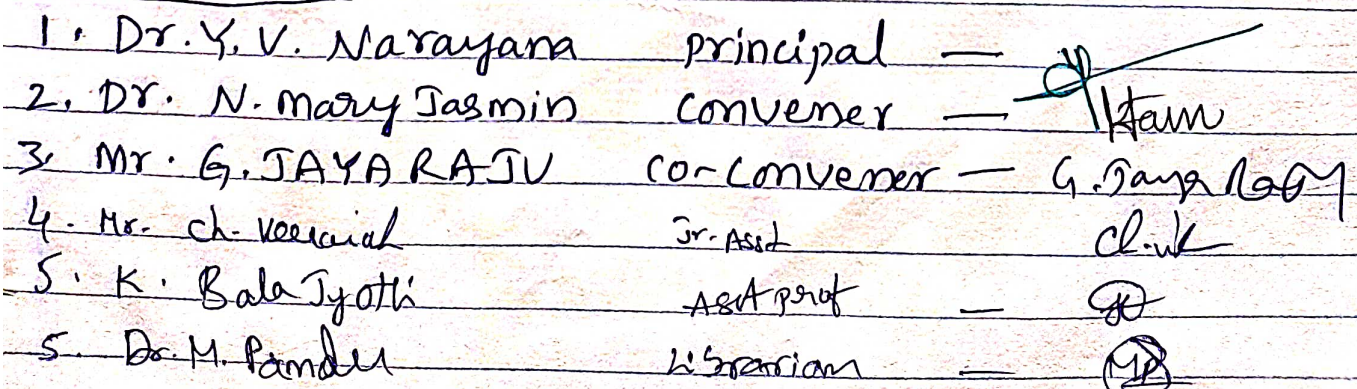 1. Dr. Y. V. Narayana principal —
2. Dr. N. Mary Jasmin Convener —
3. Mr. G. JAYA RAJU Co-Convener — G. Jaya
4. Mr. Ch. Veeraiah Jr. Asst
5. K. Bala Jyothi Asst Prof —
5. Dr. M. Pandu Librarian — MP